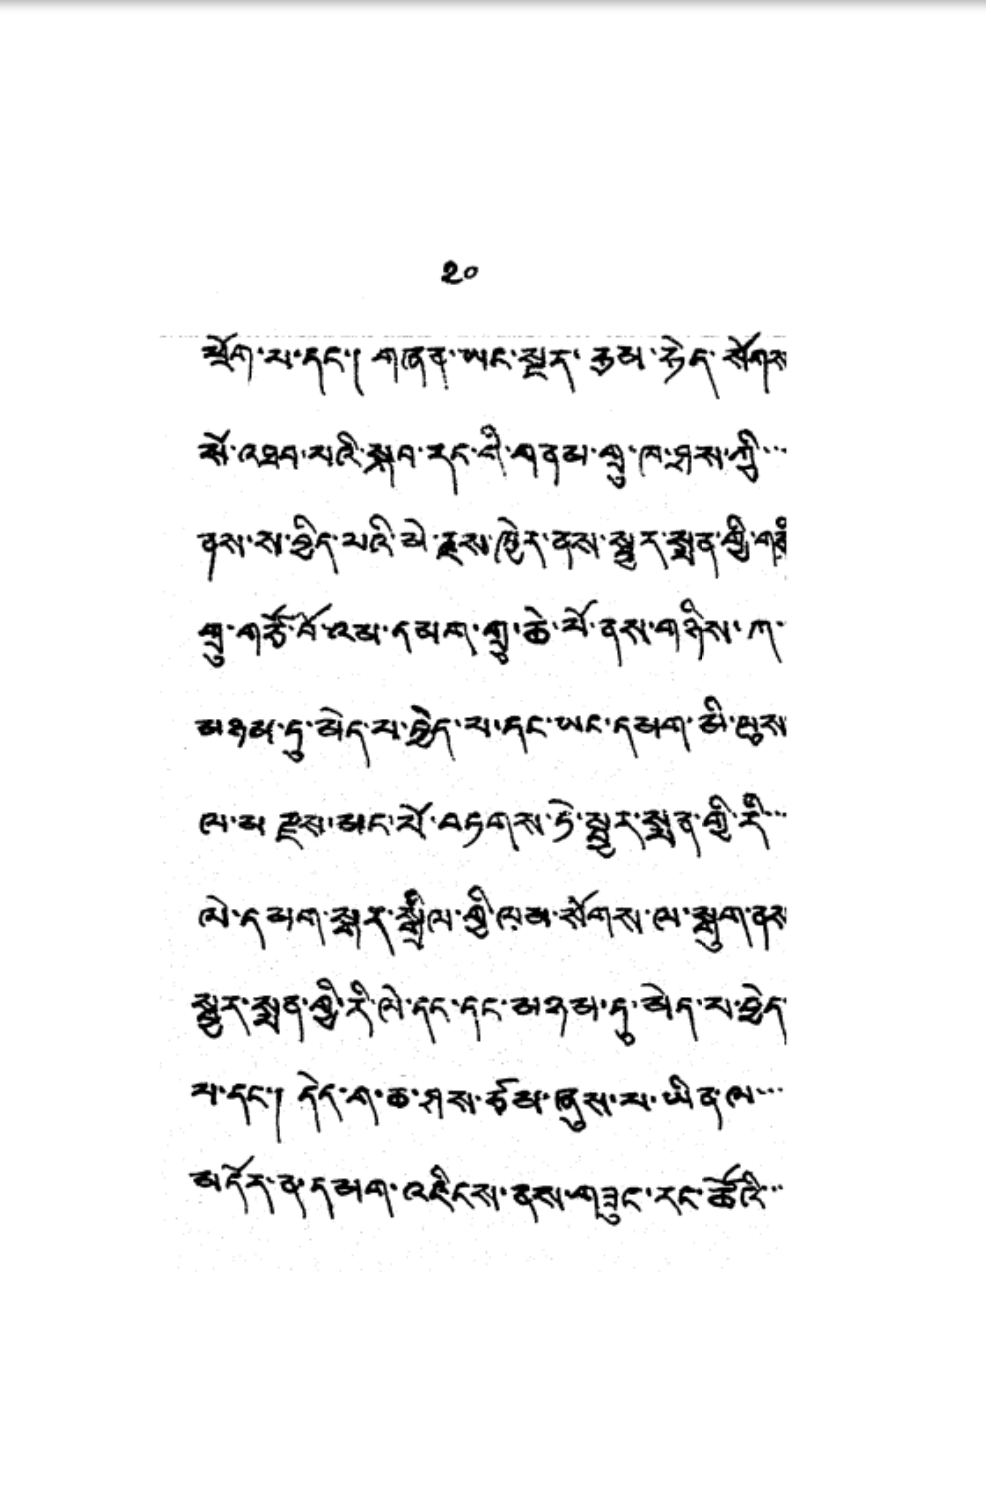 ༢༠
ཕྲོག་པ་དང་། གཞན་ཡང་སྔར་ རྩམ་ཉེད་ སོགས
སོ་འཐབ་པའི་སྐབ་རང་གི་གནམ་གྲུ་ཁ་ཤས་ཀྱི་
ནས་ས་བྱིད་པའི་མེ་རྫས་ཁྱེར་ནས་སྦྱར་སྨན་གྱི་
གྲུ་གཙོ་བོ་འམ་དམག་གྲུ་ཆེ་པོ་ནས་གཉིས་ཀ་
མཉམ་དུ་མེད་པ་བྱེད་པ་དང་ཡང་དམག་མི་ལུས
ལ་མ རྫས་མང་པོ་བཏགས་ཏེ་སྦྱར་སྨན་གྱི་རི་
ལེ་དམག་སྒར་སྒྲིལ་གྱི་ལམ་སོགས་ལ་སྒུག་ནས
སྦྱར་སྨན་གྱི་རི་ལེ་དང་དང་མཉམ་དུ་མེད་པ་བྱེད
པ་དང་། དེད་ག་ཆ་ཤས་ཙམ་ཞུས་པ་ཡིན་ལ་
མདོར་ན་དམག་འཛིངས་ནས་གཟུང་རང་ཚོའི་